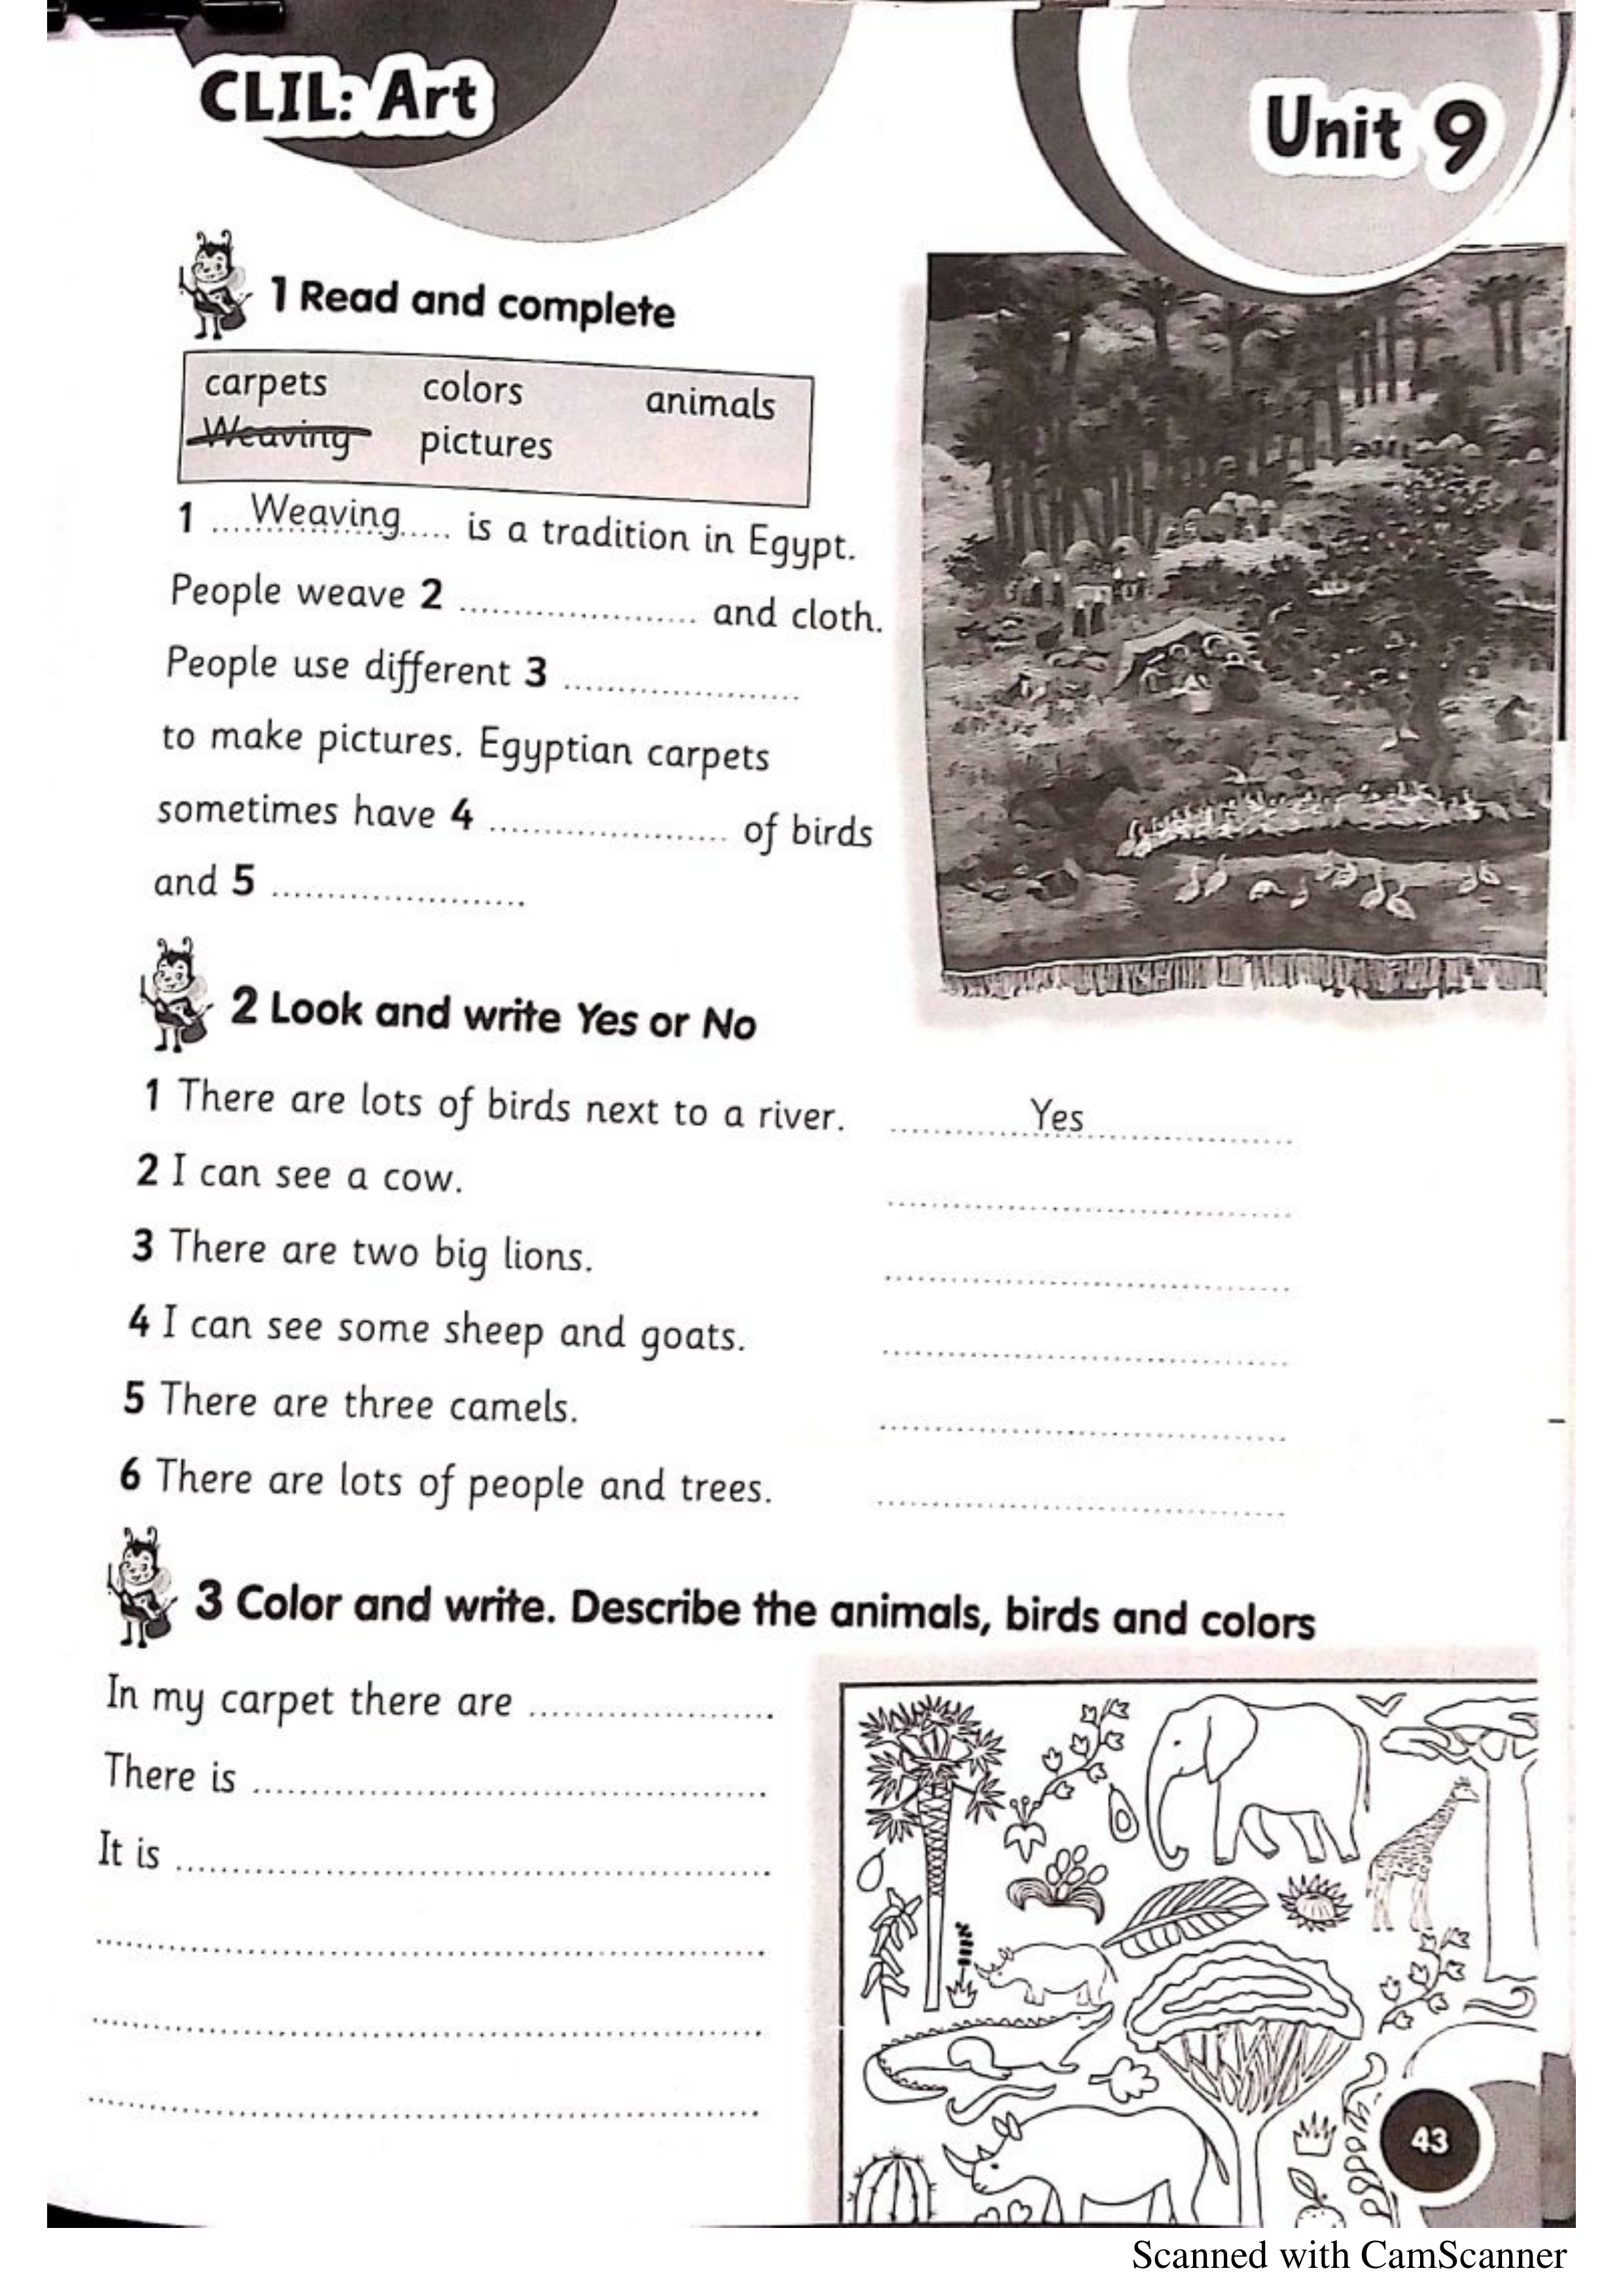 CLIL: Art
Unit 9
1 Read and complete
carpets colors animals
Weaving pictures
1 ....Weaving..... is a tradition in Egypt.
People weave 2 ........................ and cloth.
People use different 3 ........................
to make pictures. Egyptian carpets
sometimes have 4 ........................ of birds
and 5 ........................
2 Look and write Yes or No
1 There are lots of birds next to a river. Yes
2 I can see a cow. ........................
3 There are two big lions. ........................
4 I can see some sheep and goats. ........................
5 There are three camels. ........................
6 There are lots of people and trees. ........................
3 Color and write. Describe the animals, birds and colors
In my carpet there are ........................
There is ........................
It is ........................
43
Scanned with CamScanner